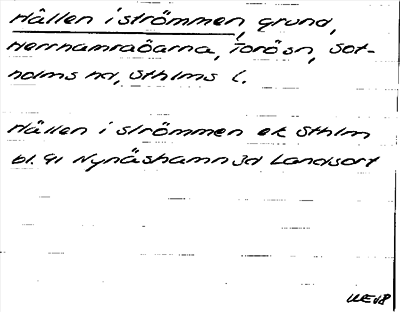 Hällen i strömmen, grund,
Herrhamraöarna, Torö sn, Sot-
holms hd, Sthlms l.
Hällen i strömmen ek Sthlm
bl. 91 Nynäshamn Sd Landsort